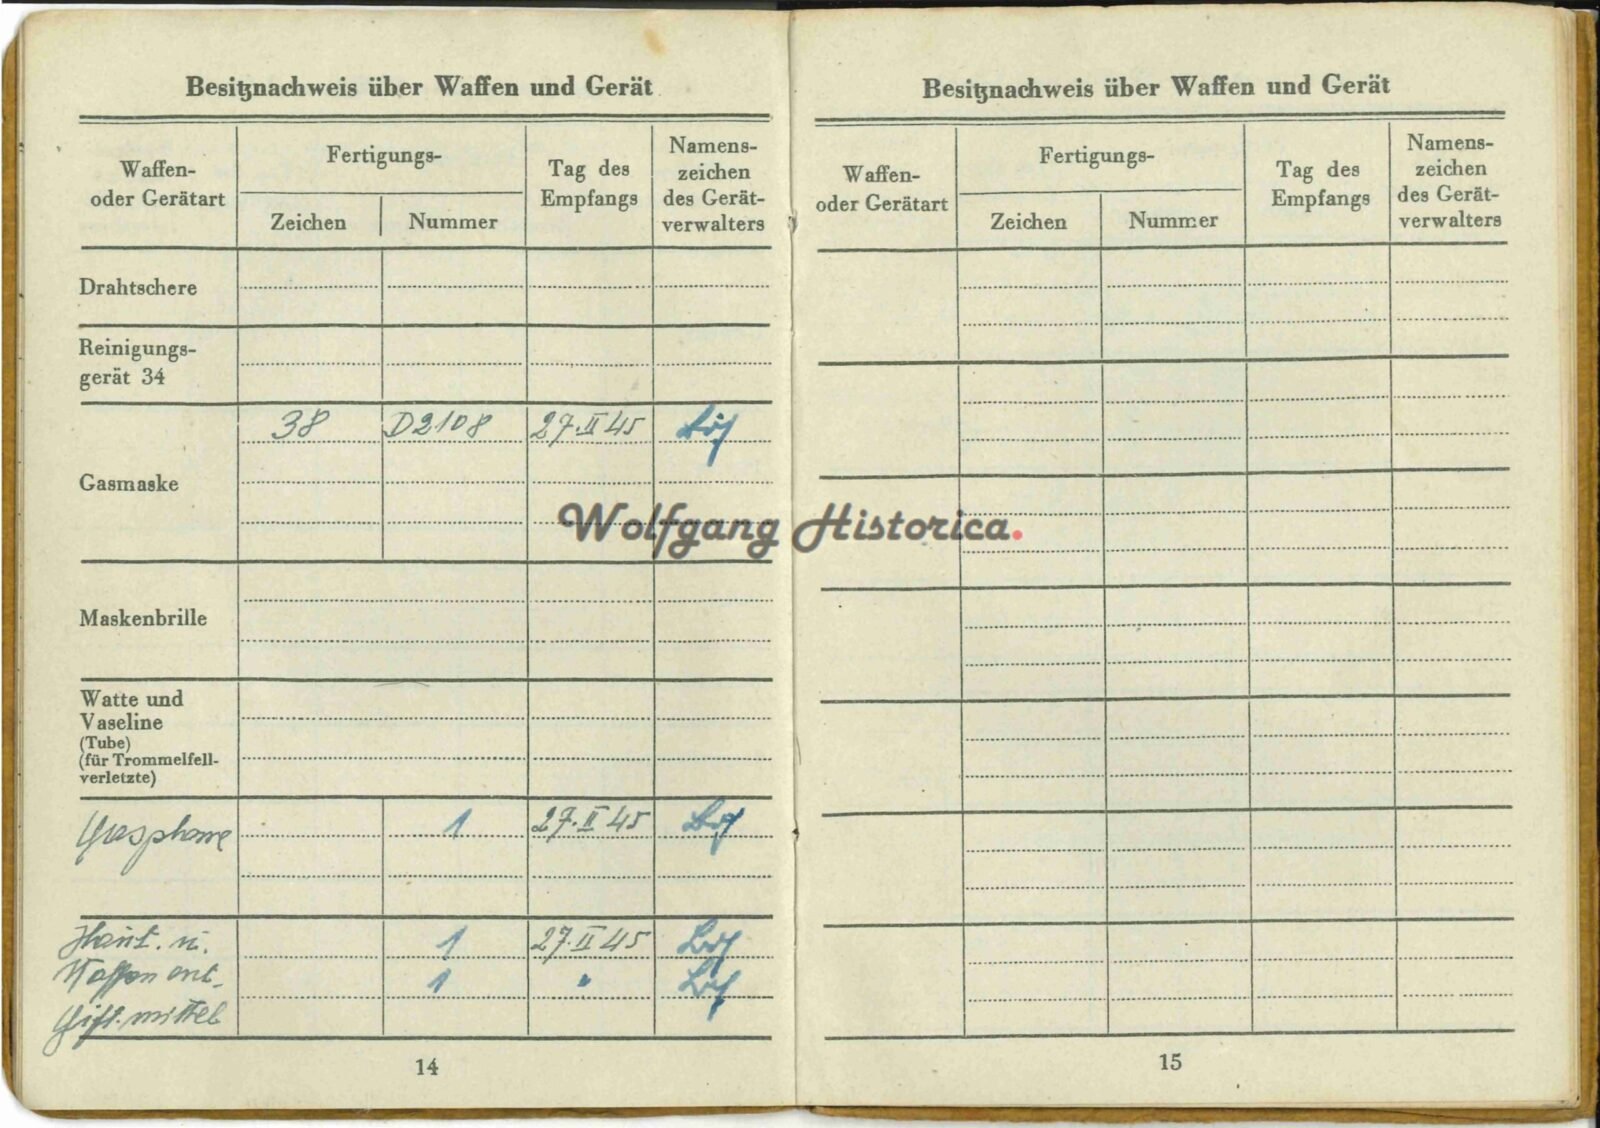 Besitznachweis über Waffen und Gerät
Waffen-
oder Gerätart
Fertigungs-
Zeichen
Nummer
Tag des
Empfangs
Namens-
zeichen
des Gerät-
verwalters
Drahtschere
Reinigungs-
gerät 34
Gasmaske
38 D2108 27.II 45
Maskenbrille
Watte und
Vaseline
(Tube)
(für Trommelfell-
verletzte)
Gasplane 1 27.II 45
Haut. u. 1 27.II 45
Waffen ent- 1 "
Gift.mittel
14
Besitznachweis über Waffen und Gerät
Waffen-
oder Gerätart
Fertigungs-
Zeichen
Nummer
Tag des
Empfangs
Namens-
zeichen
des Gerät-
verwalters
15
Wolfgang Historica.